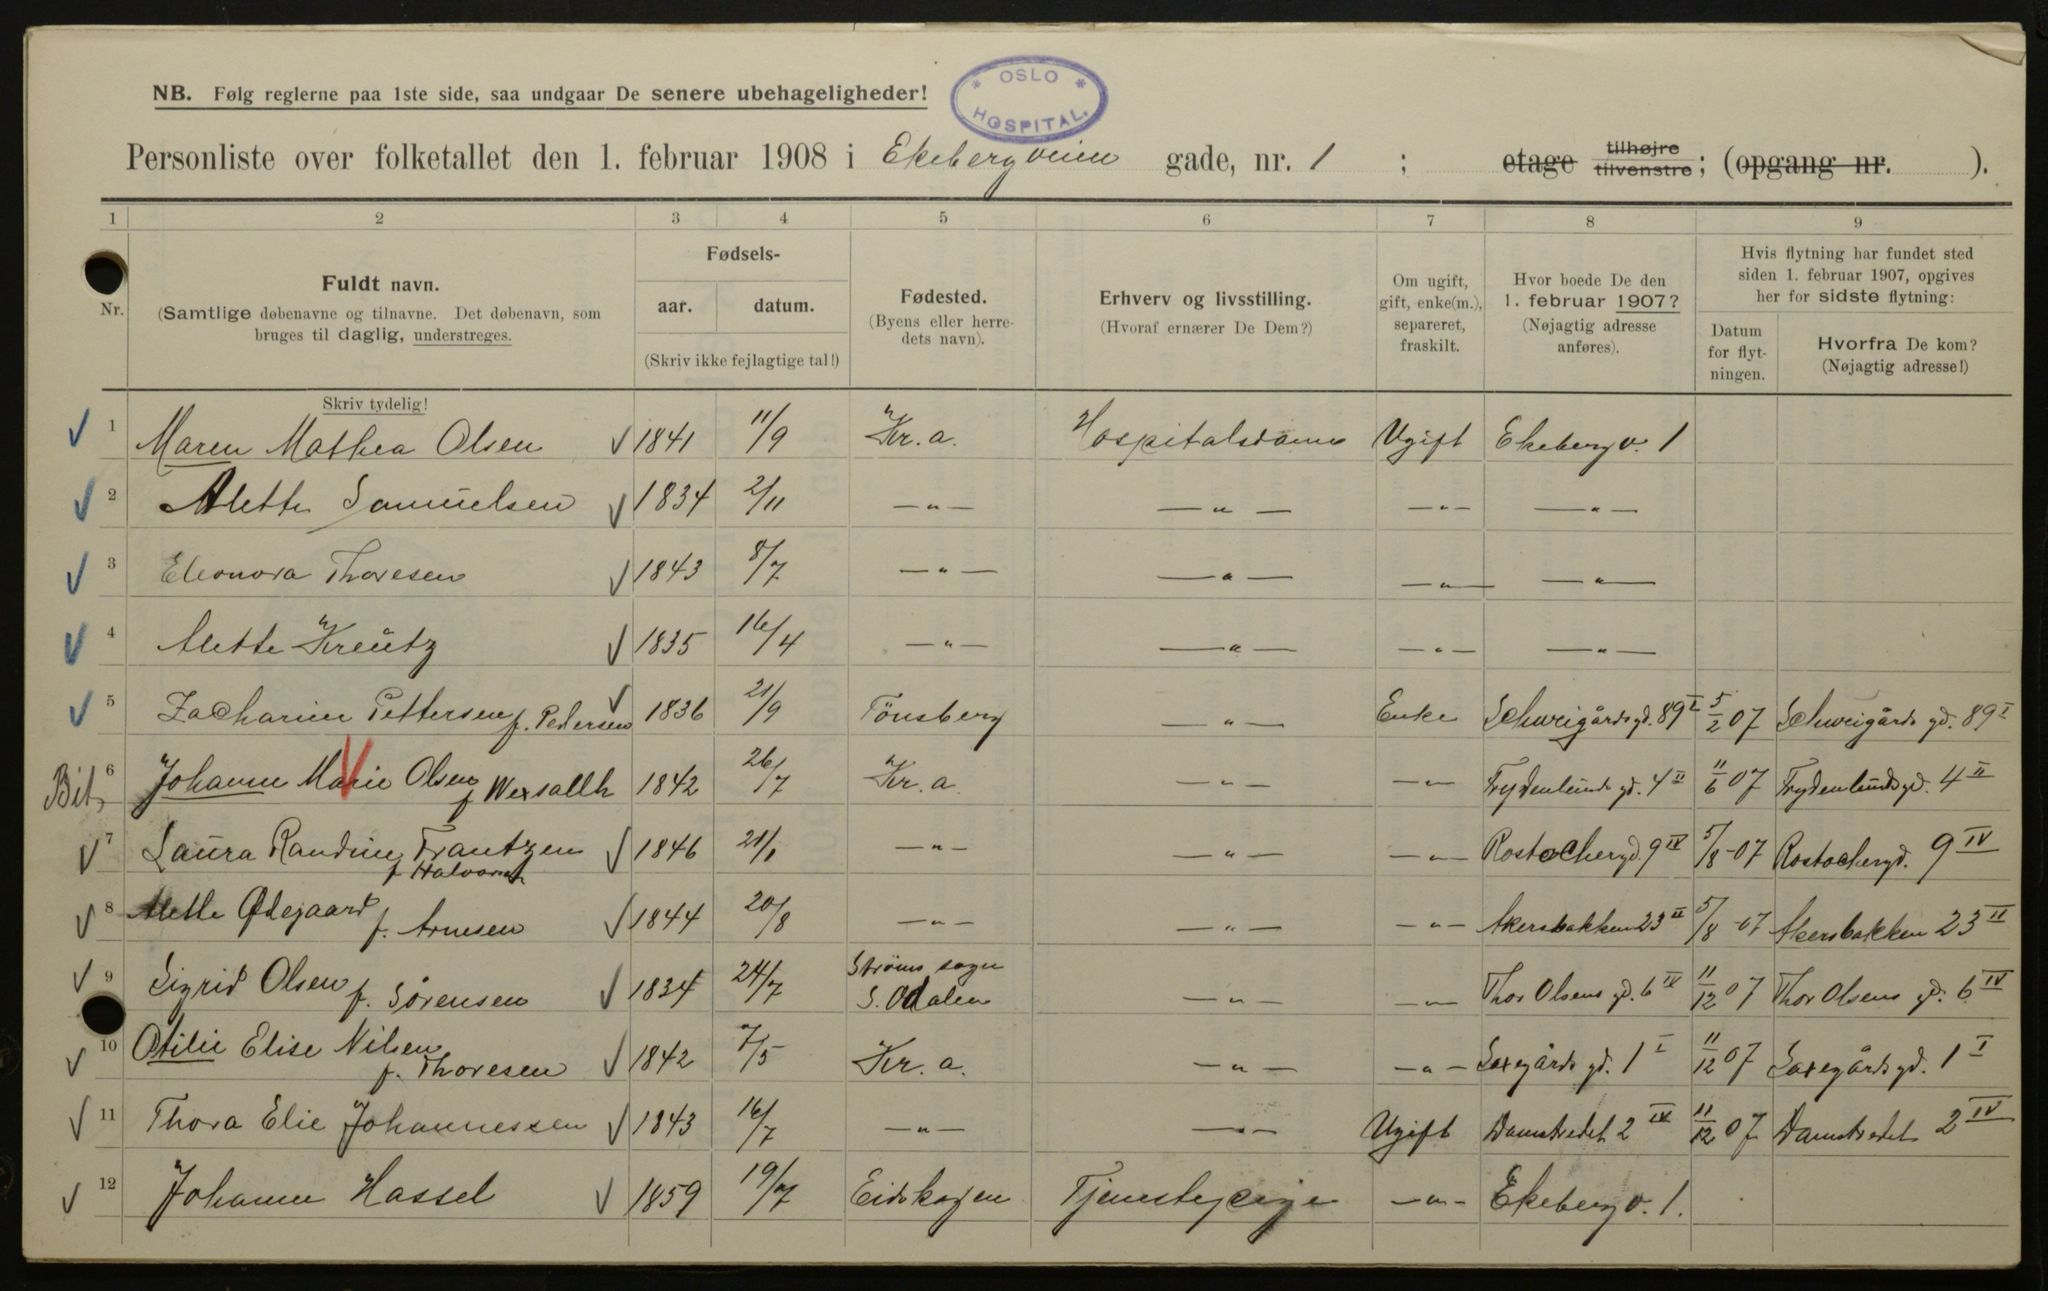 NB. Følg reglerne paa 1ste side, saa undgaar De senere ubehageligheder!
* OSLO *
HOSPITAL.
Personliste over folketallet den 1. februar 1908 i Ekebergveien gade, nr. 1 ; etage tilhøjre tilvenstre; (opgang nr. ).
1 2 3 4 5 6 7 8 9
Nr.
Fuldt navn.
(Samtlige døbenavne og tilnavne. Det døbenavn, som
bruges til daglig, understreges.
Skriv tydelig!
Fødsels-
aar. datum.
(Skriv ikke fejlagtige tal!)
Fødested.
(Byens eller herre-
dets navn).
Erhverv og livsstilling.
(Hvoraf ernærer De Dem?)
Om ugift,
gift, enke(m.),
separeret,
fraskilt.
Hvor boede De den
1. februar 1907?
(Nøjagtig adresse
anføres).
Hvis flytning har fundet sted
siden 1. februar 1907, opgives
her for sidste flytning:
Datum
for flyt-
ningen.
Hvorfra De kom?
(Nøjagtig adresse!)
1 Maren Mathea Olsen 1841 11/9 Kr.a. Hospitalsdame Ugift Ekebergv. 1
2 Alette Samuelsen 1834 2/11 —"— —"— —"— —"—
3 Eleonora Thoresen 1843 8/7 —"— —"— —"— —"—
4 Alette Kreutz 1835 16/4 —"— —"— —"— —"—
5 Zacharine Pettersen f. Pedersen 1836 21/9 Tönsberg —"— Enke Schweigårdsgd. 89 I 5/2 07 Schweigårds gd. 89 I
Bit. 6 Johanne Marie Olsen f. Wexsallh 1842 26/7 Kr.a. —"— —"— Frydenlunds gd. 4 II 11/6 07 Frydenlundsgd. 4 II
7 Laura Randine Frantzen 1846 21/1 —"— —"— —"— Rostochergd. 9 IV 5/8-07 Rostochergd. 9 IV
f. Halvorsen
8 Mette Ødegaard f. Arnesen 1844 20/8 —"— —"— —"— Akersbakken 23 II 5/8-07 Akersbakken 23 II
9 Sigrid Olsen f. Sörensen 1834 24/7 Strøms sogn S. Odalen —"— —"— Thor Olsens gd. 6 IV 11/12 07 Thor Olsens gd. 6 IV
10 Otilie Elise Nilsen f. Thoresen 1842 7/5 Kr.a. —"— —"— Saxegårds gd. 1 I 11/12 07 Saxegårdsgd. 1 I
11 Thora Elie Johannessen 1843 16/7 —"— —"— Ugift Damstredet 2 IV 11/12 07 Damstredet 2 IV
12 Johanne Hassel 1859 19/7 Eidskogen Tjenestepige —"— Ekebergv. 1.